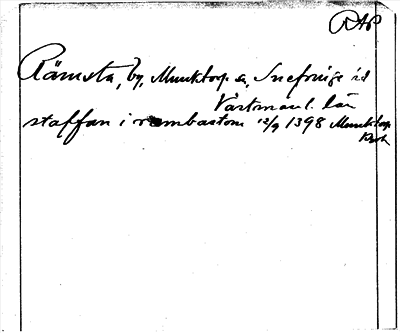 RAP
Rämsta, by, Munktorp s, Snefringe hd
Västmanl. län
staffan i rembastom 12/9 1398 Munktorp